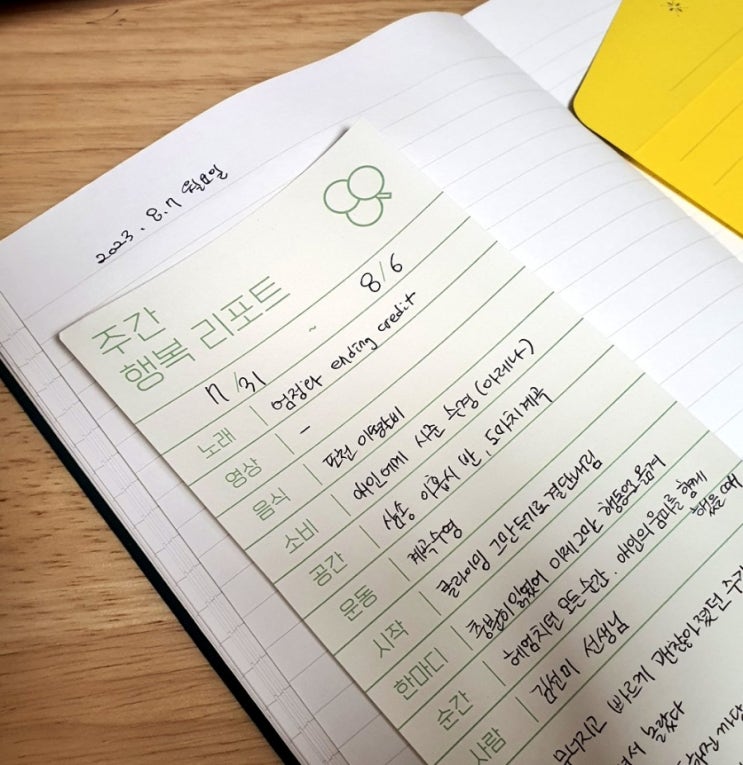 2023. 8.7 월요일
주간
행복 리포트
7/31 ~ 8/6
노래 엄정화 ending credit
영상 -
음식 포천 이동갈비
소비 애인에게 사준 수경 (아레나)
공간 삼송 이층시 반, 도마치계곡
운동 계곡수영
시작 클라이밍 그만 두기로 결단내림
한마디 충분히 읽었어 이제 그만 행동으로 옮겨
순간 헤엄치던 모든 순간. 애인의 음미를 함께 했을 때
사람 김선미 선생님
무너지고 빠르게 괜찮아졌던
놀랐다